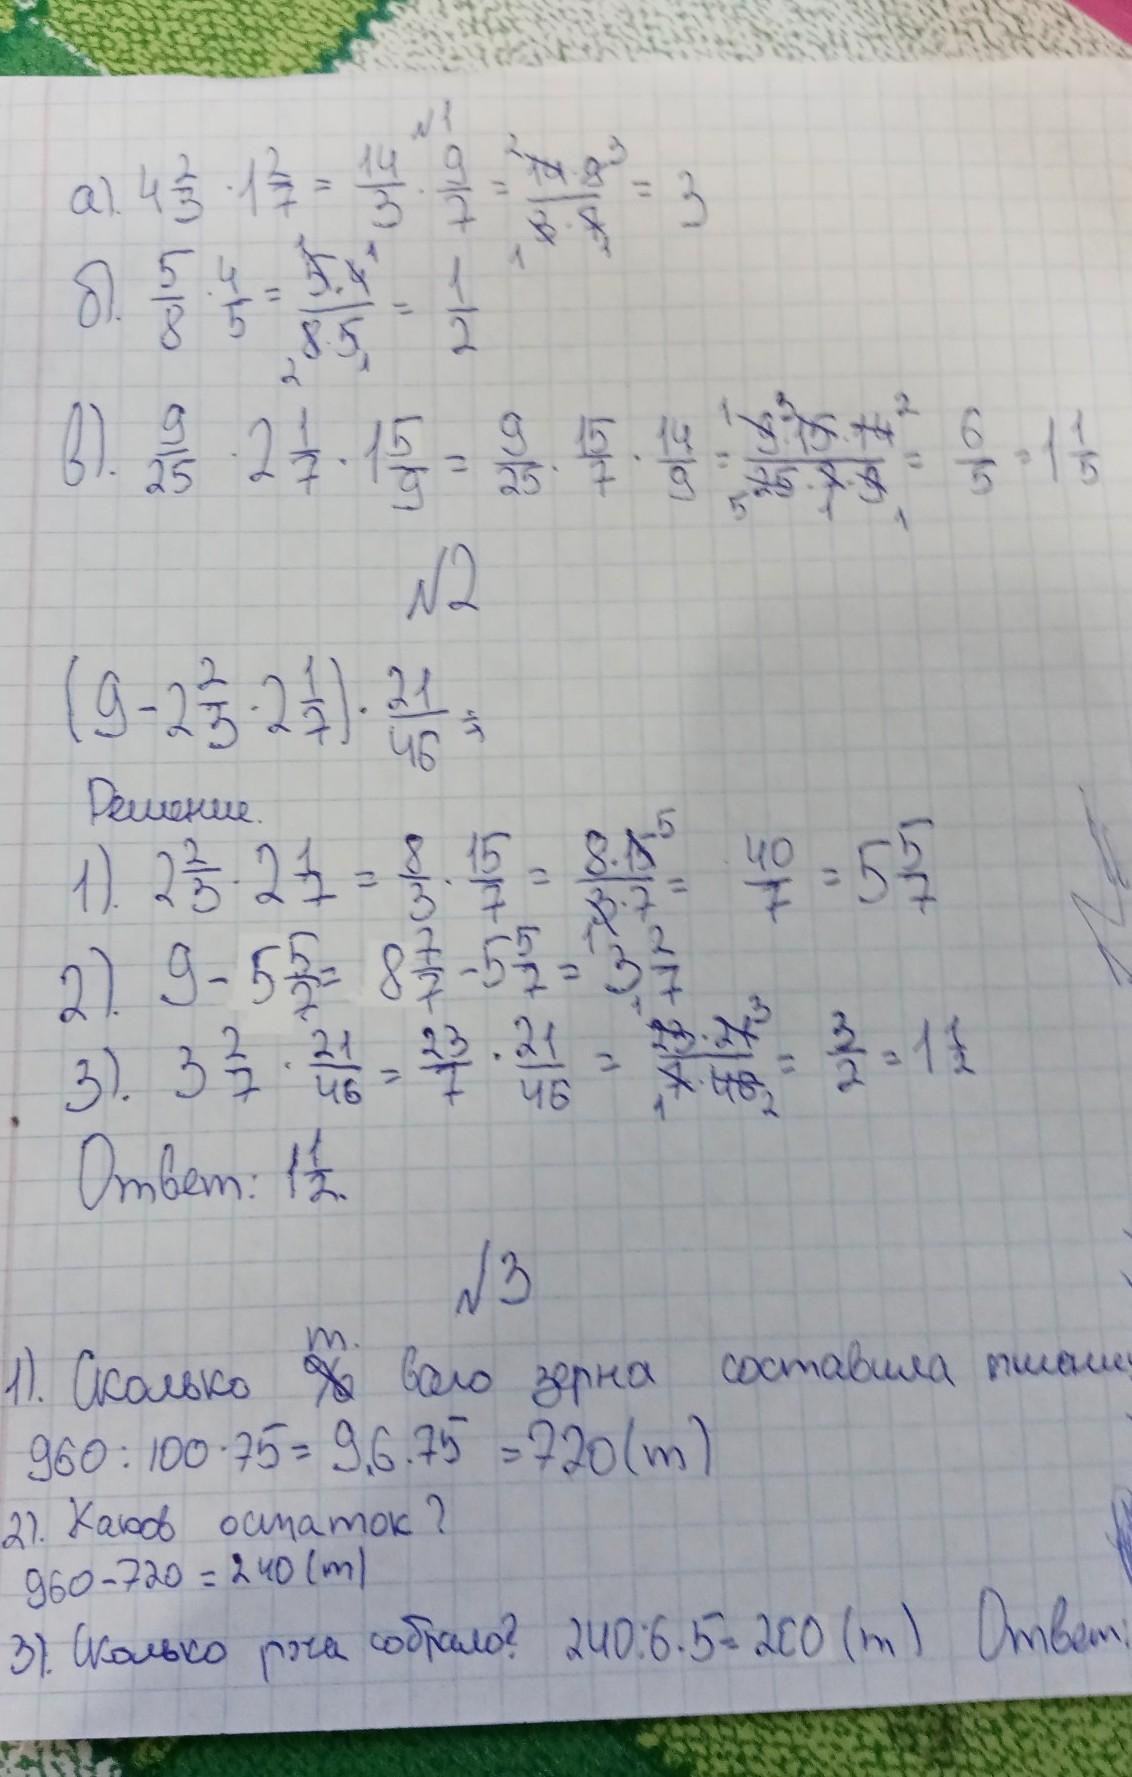 №1
а). 4 2/3 · 1 2/7 = 14/3 · 9/7 = 14·9/3·7 = 3
б). 5/8 · 4/5 = 5·4/8·5 = 1/2
в). 9/25 · 2 1/7 · 1 5/9 = 9/25 · 15/7 · 14/9 = 9·15·14/25·7·9 = 6/5 = 1 1/5
№2
(9 - 2 2/3 · 2 1/7) · 21/46 =
Решение.
1). 2 2/3 · 2 1/7 = 8/3 · 15/7 = 8·15/3·7 = 40/7 = 5 5/7
2). 9 - 5 5/7 = 8 7/7 - 5 5/7 = 3 2/7
3). 3 2/7 · 21/46 = 23/7 · 21/46 = 23·21/7·46 = 3/2 = 1 1/2
Ответ: 1 1/2.
№3
1). Сколько т. всего зерна составила
960 : 100 · 75 = 9,6 · 75 = 720 (т)
2). Каков остаток?
960 - 720 = 240 (т)
3). Сколько собрало? 240 : 6 · 5 = 200 (т) Ответ: